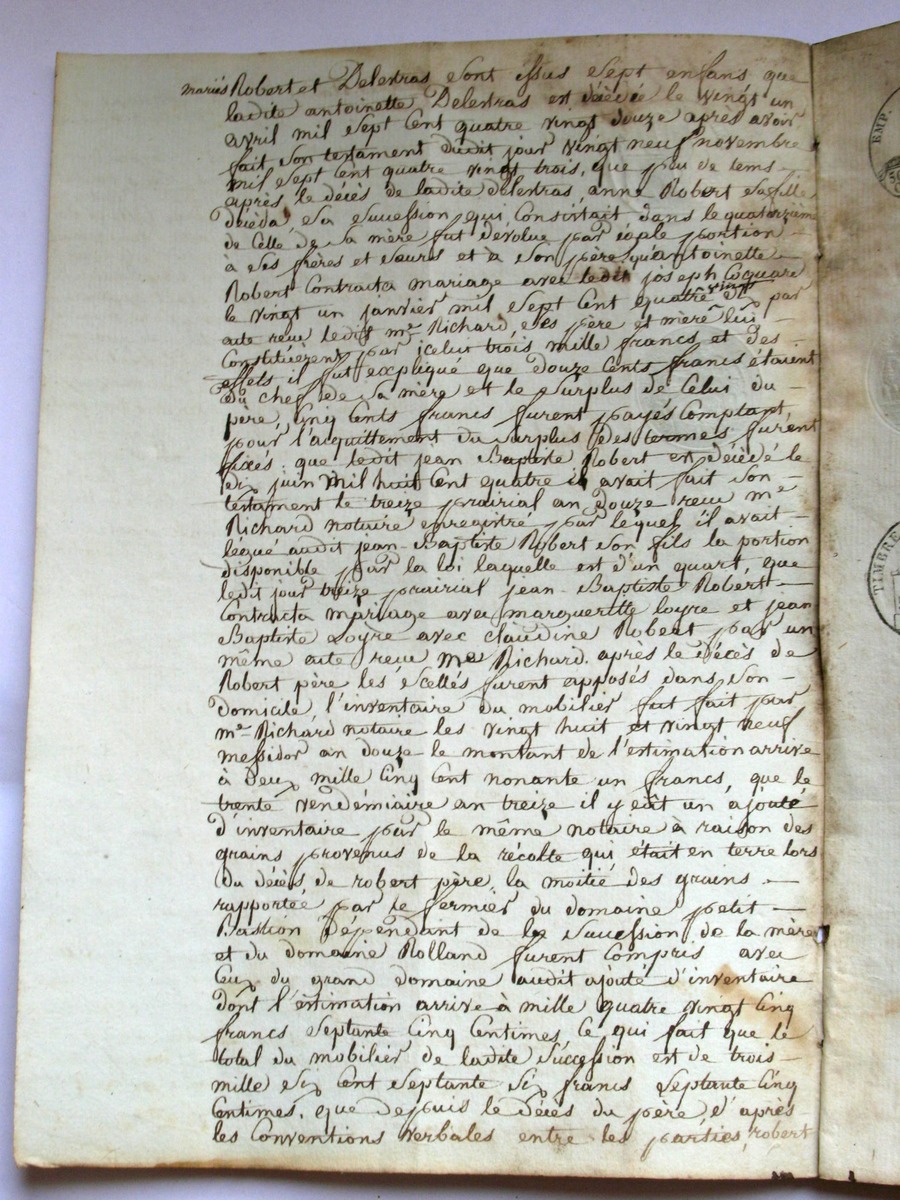 mariés Robert et Delestras sont issus sept enfans que
ladite antoinette Delestras est décédée le vingt un
avril mil sept cent quatre vingt douze après avoir
fait son testament dudit jour vingt neuf novembre
mil sept cent quatre vingt trois, que peu de tems
après le décès de ladite delestras, anne Robert sa fille
décéda, sa succession qui consistait dans le quatorzième
de celle de sa mère fut dévolue par égale portion
à ses frères et sœurs et a son père, qu'antoinette
Robert contracta mariage avec ledit joseph Coquare
le vingt un janvier mil sept cent quatre vingt dix par
acte reçu ledit me Richard, ses père et mère lui
constituèrent par icelui trois mille francs et des
effets, il fut expliqué que douze cents francs étaient
du chef de sa mère et le surplus de celui du
père, cinq cents francs furent payés comptant,
pour l'acquittement du surplus des termes furent
fixés : que ledit jean Baptiste Robert est décédé le
dix juin mil huit cent quatre il avait fait son
testament le treize prairial an douze reçu me
Richard notaire enregistré par lequel il avait
légué audit jean-Baptiste Robert son fils la portion
disponible par la loi laquelle est d'un quart, que
ledit jour treize prairial jean-Baptiste Robert
contracta mariage avec marguerite loyre et jean
Baptiste Loyre avec claudine Robert par un
même acte reçu me Richard. après le décès de
Robert père les scellés furent apposés dans son
domicile, l'inventaire du mobilier fut fait par
me Richard notaire les vingt huit et vingt neuf
messidor an douze le montant de l'estimation arrive
à deux mille cinq cent nonante un francs, que le
trente vendémiaire an treize il y eût un ajouté
d'inventaire par le même notaire à raison des
grains provenus de la récolte qui était en terre lors
du décès de robert père, la moitié des grains
rapportée par le fermier du domaine petit
Bastion dépendant de la succession de la mère
et du domaine Rolland furent compris avec
ceux du grand domaine audit ajouté d'inventaire
dont l'estimation arrive à mille quatre vingt cinq
francs septante cinq centimes, ce qui fait que le
total du mobilier de ladite succession est de trois
mille six cent septante six francs septante cinq
centimes, que depuis le décès du père d'après
les conventions verbales entre les parties, robert
EMP.
TIMBRE